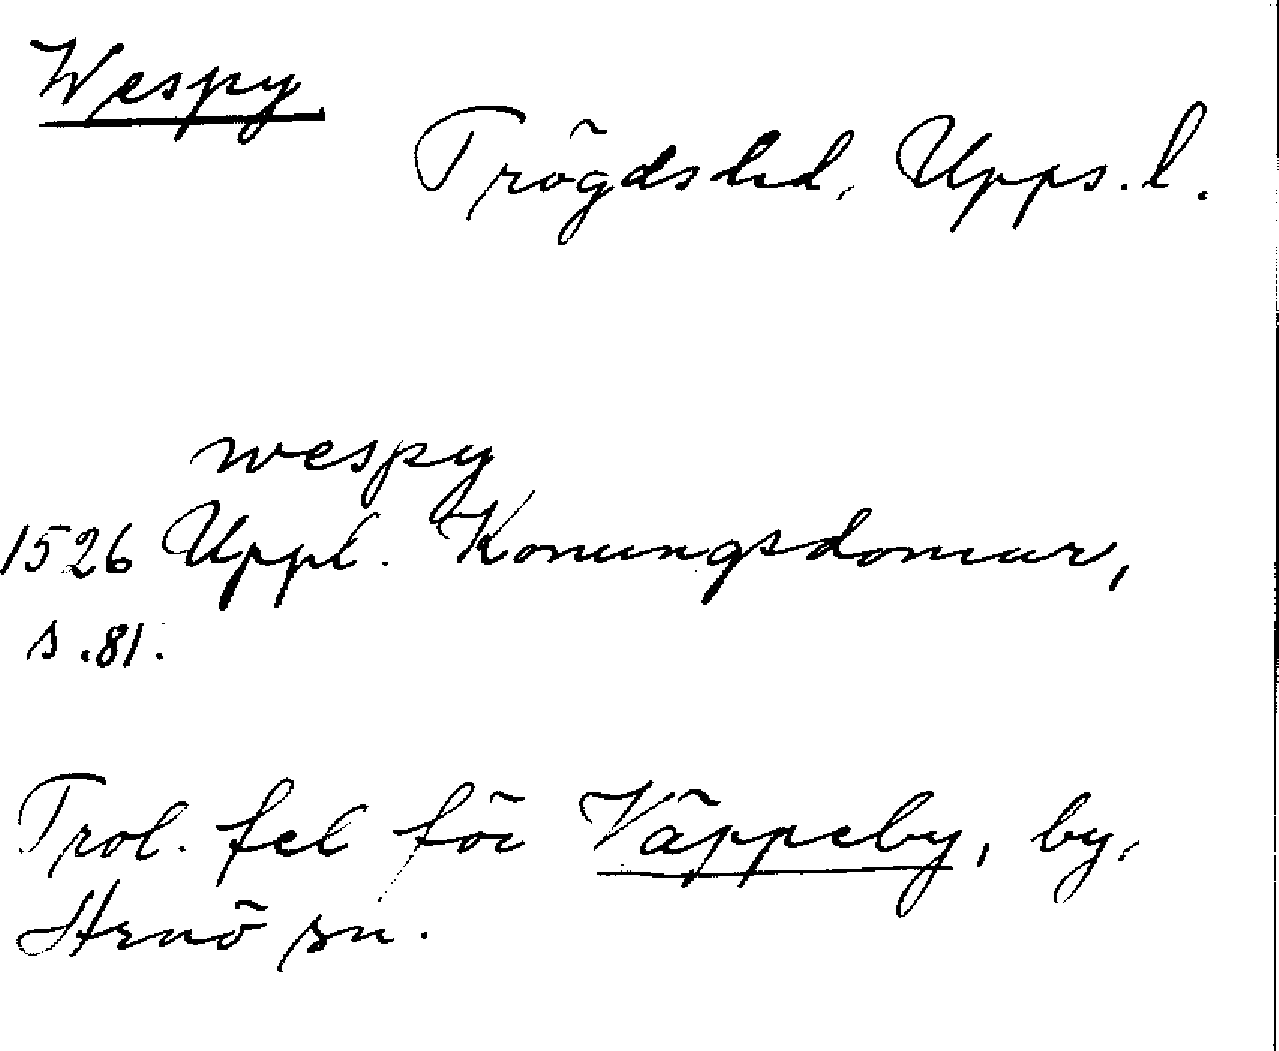 Wespy
Trögds hd, Upps. l.
wespy
1526 Uppl. Konungsdomar,
s. 81.
Trol. fel för Väppeby, by,
Arnö sn.